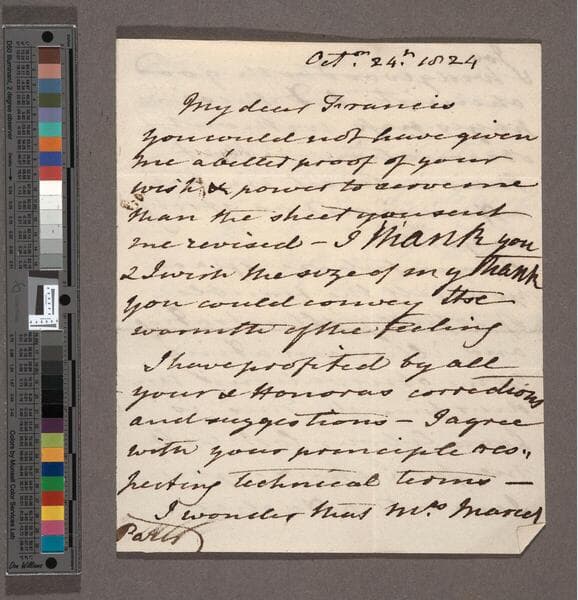 Octr. 24th. 1824
My dear Francis
you could not have given
me a better proof of your
wish & power to serve me
than the sheet you sent
me revised – I thank you
& I wish the size of my thank
you could convey the
warmth of the feeling
I have profited by all
your & Honoras corrections
and suggestions – I agree
with your principle res„
pecting technical terms –
I wonder that Mrs Marcet